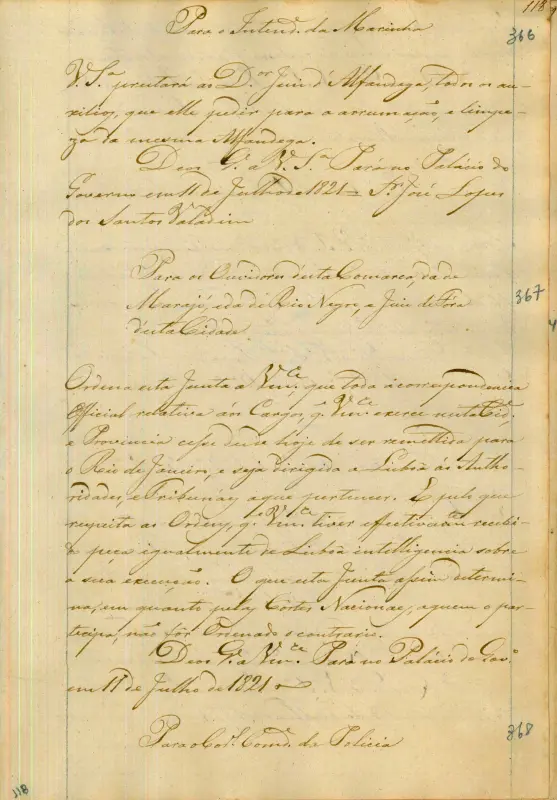 118
Para o Intend. da Marinha
366
V. S.ª prestará ao D.or Juiz d'Alfandega, todos os au-
xilios, que elle pedir para a arrumação, e limpe-
za da mesma Alfandega.
Deos G.e a V. S.ª Pará no Palacio do
Governo em 11 de Julho de 1821 = José Lopes
dos Santos Valadim
Para os Ouvidores desta Comarca, da de
Marajó, e da do Rio Negro, e Juiz de Fóra
desta Cidade
367
Ordena esta Junta a Vm.ce que toda a correspondencia
Official relativa aos Cargos, q. Vm.ce exerce nesta Cid.e
e Provincia cesse desde hoje de ser remettida para
o Rio de Janeiro, e seja dirigida a Lisboa ás Autho-
ridades, e Tribunaes a que pertencer. E pelo que
respeita as Ordens, q. Vm.ce tiver effectivam.te recebi-
do peça igualmente de Lisboa intelligencia sobre
a sua execução. O que esta Junta assim determi-
na, em quanto pelas Côrtes Nacionaes, a quem o par-
ticipa, não fôr Ordenado o contrario.
Deos G.e a Vm.ce Pará no Palacio do Gov.o
em 11 de Julho de 1821
Para o Cor.el Com.e da Policia
368
118